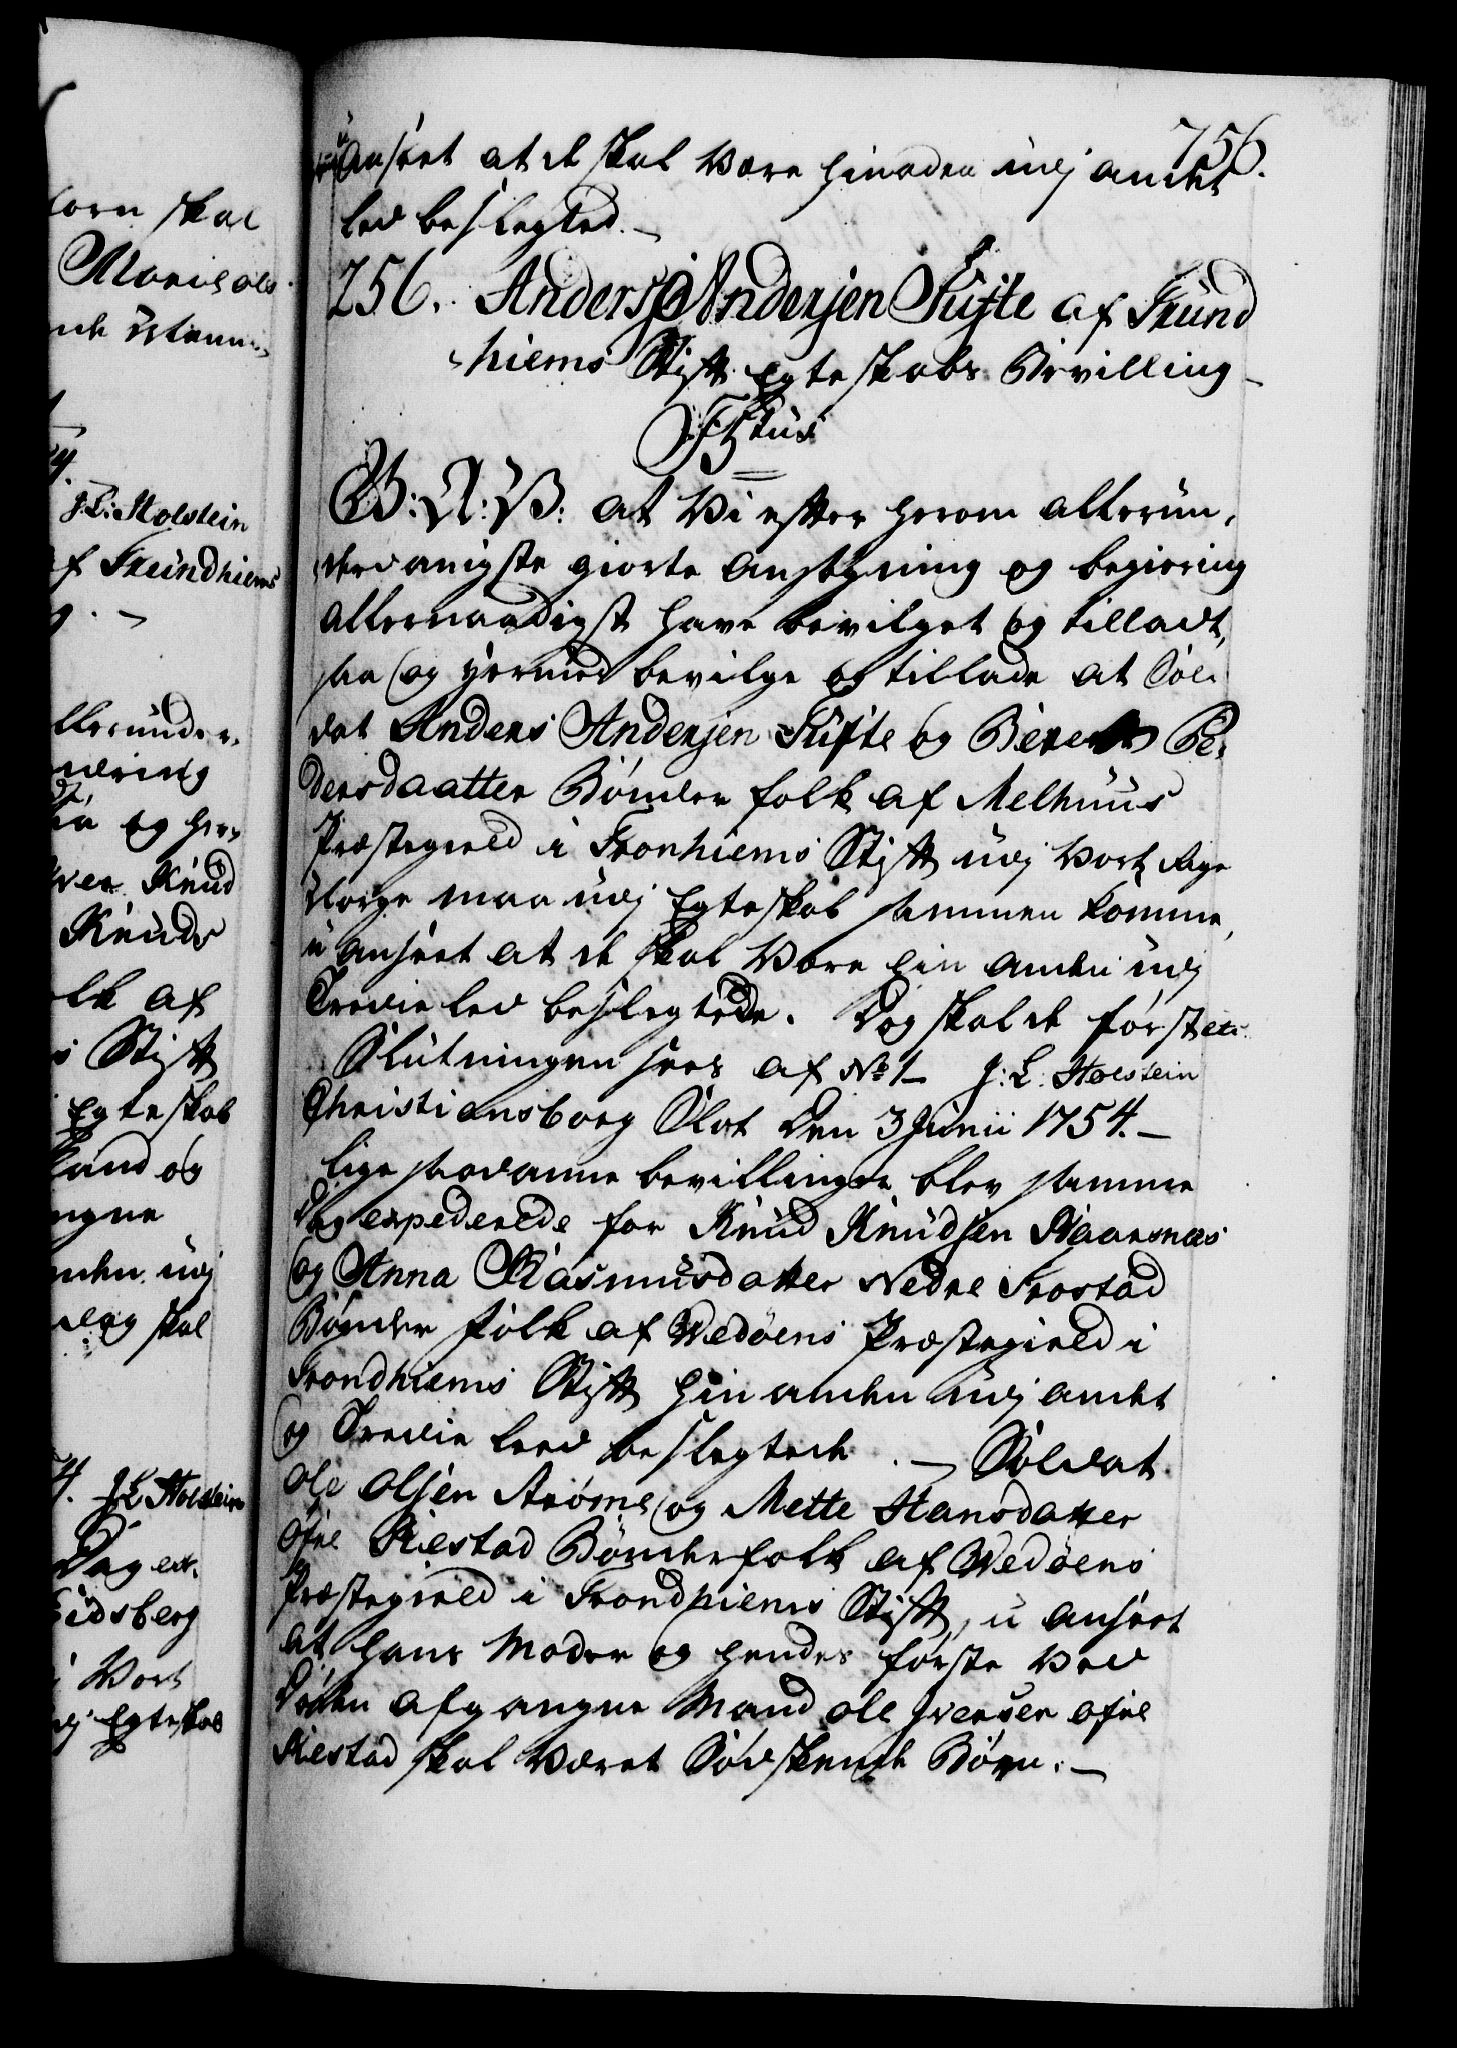 756.
uAnseet at de skal være hinanden udj andet
led beslegted. —
256. Anders Andersen Tufte af Trund
hiems Stift Egteskabs Bevilling —
F5tus
G: A: V: at Vi efter herom allerun,
derdanigste giorte Ansøgning og begiering
allernaadigst have bevilget og tilladt,
saa og hermed bevilge og tillade at Sol-
dat Anders Andersen Tufte og Berett Pe-
dersdaatter Bønder folk af Melhuus
Præstegield i Tronhiems Stift udj Vort Rige
Norge maa udj Egteskab sammen komme,
u anseet at de skal være hin anden udj
Tredie led beslegtede. Dog skal de først etc.
Slutningen sees af No 1 J: L: Holstein
Christiansborg Slot den 3 Junii 1754. —
lige saadanne bevillinger blev samme
Dag expederede for Knud Knudsen Haarsnæs
og Anna Rasmusdatter Nedre Frostad
Bønder folk af Wedøens Præstegield i
Trondhiems Stift hin anden udj andet
og Tredie leed beslegtede. — Soldat
Ole Olsen Arøme og Mette Hansdatter
Øfre Riestad Bønderfolk af Wedøens
Præstegield i Trondhiems Stift, u anseet
at hans Moder og hendes første ved
Døden afgangne Mand Ole Iversen øfre
Riestad skal været Sødskende Børn. —
corn skal
Marit ols
J: L: Holstein
af Trundhiems
llerunder,
og her
Knud
Knuds
olk af
Stift
Egteskab
og
ngne
nden udj
dog skal
4. J L Holstein
Dag ex.
Eidsberg
i Vort
udj Egteskab